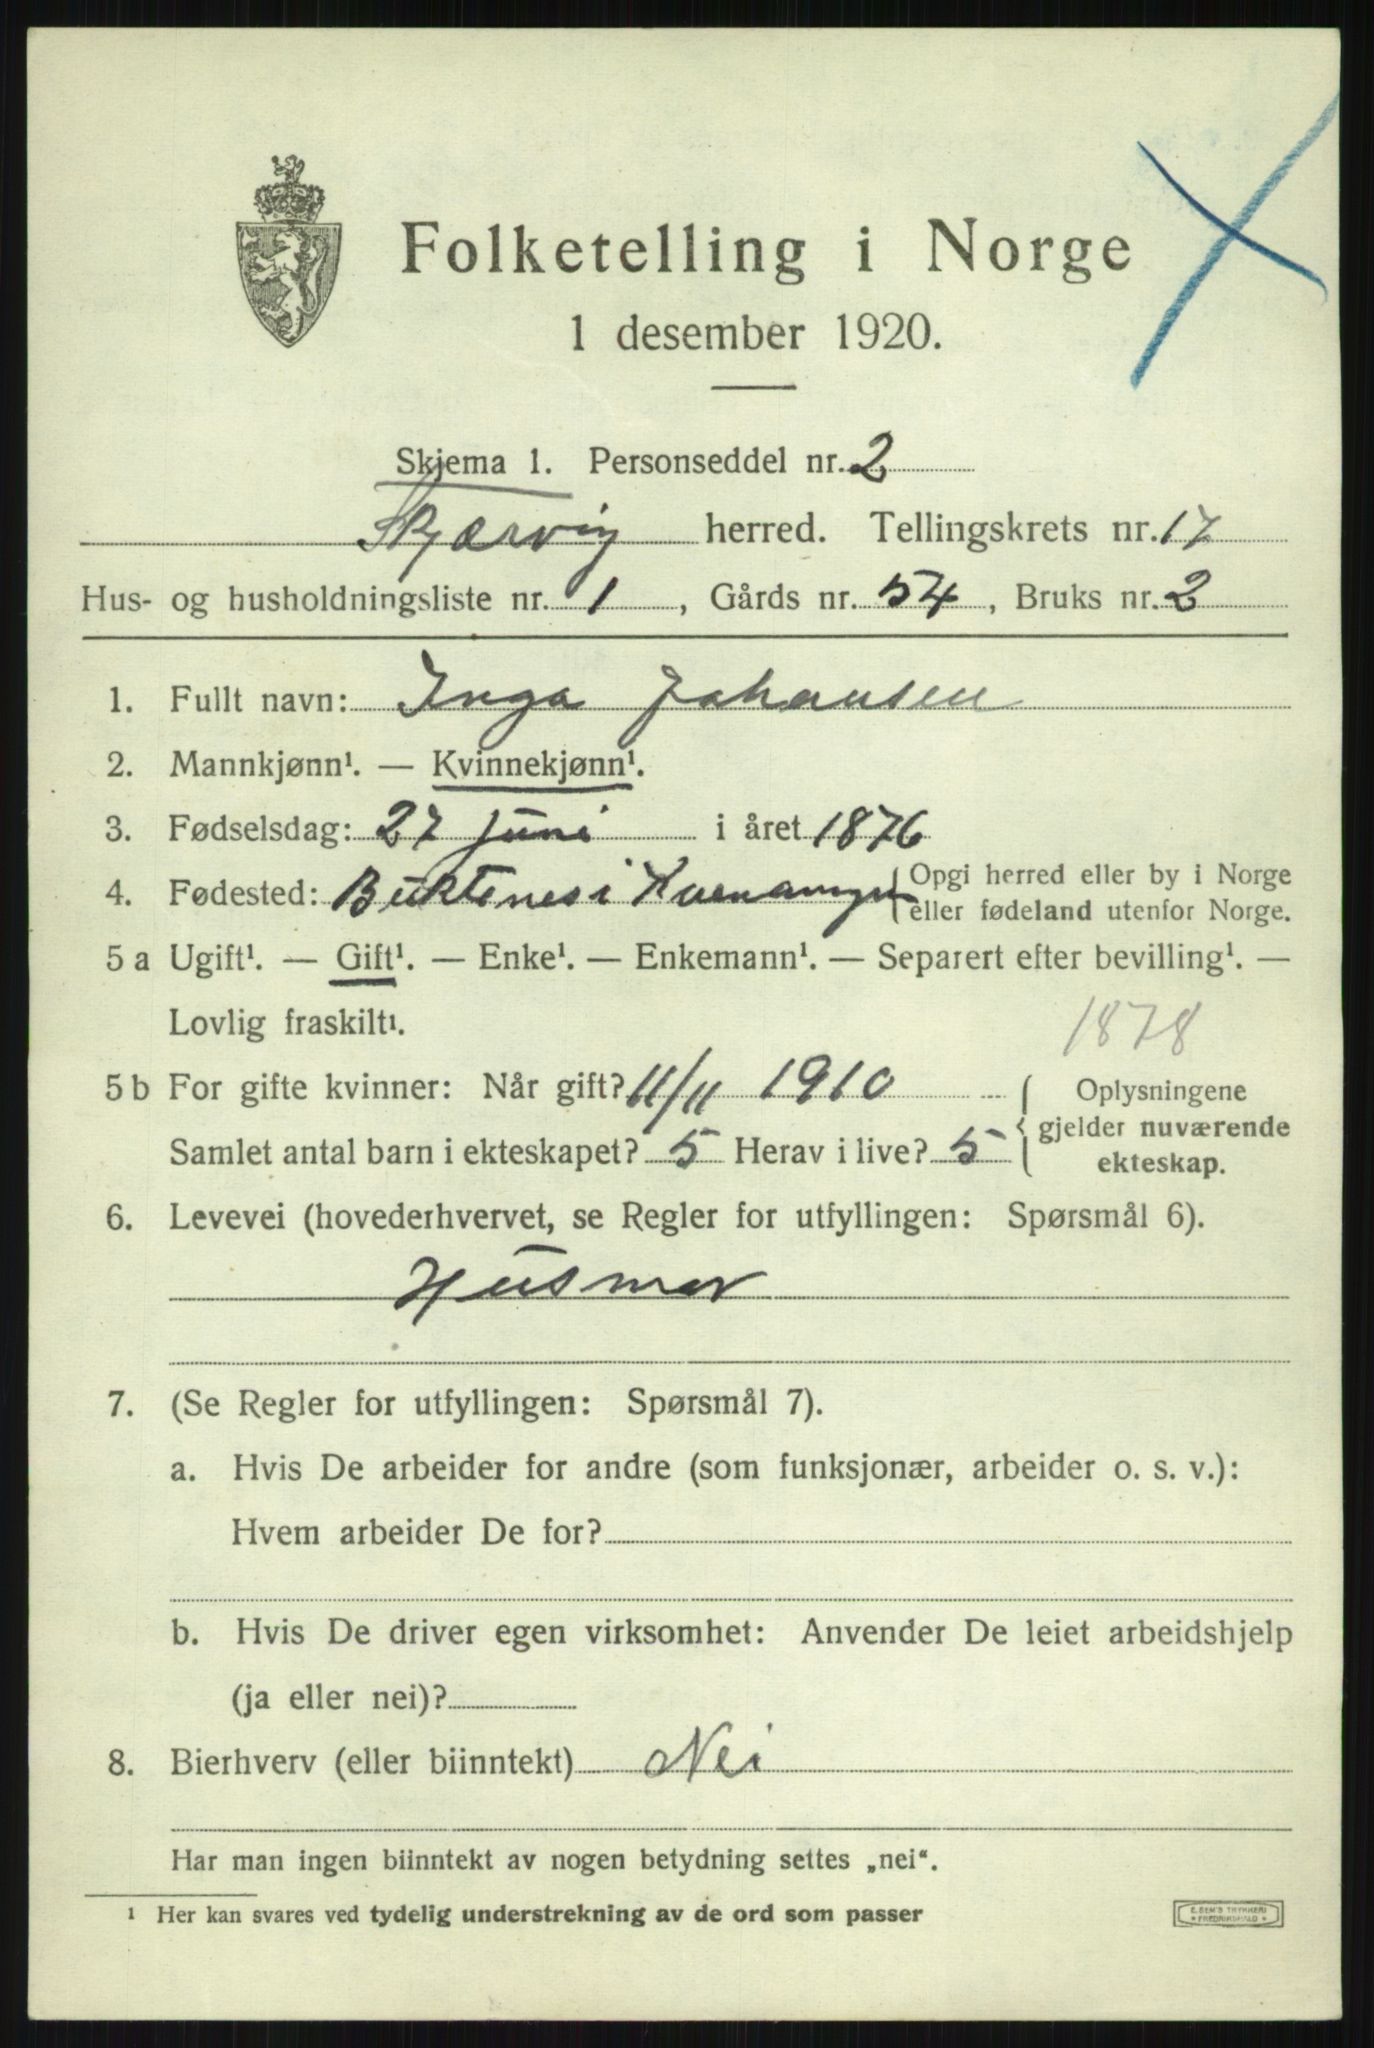 Folketelling i Norge
1 desember 1920.
Skjema 1. Personseddel nr. 2
Skjærvøy herred. Tellingskrets nr. 17
Hus- og husholdningsliste nr. 1, Gårds nr. 54, Bruks nr. 2
1. Fullt navn: Inga Johansen
2. Mannkjønn¹. — Kvinnekjønn¹.
3. Fødselsdag: 27 juni i året 1876
4. Fødested: Buktenes i Kvenangen Opgi herred eller by i Norge
eller fødeland utenfor Norge.
5 a Ugift¹. — Gift¹. — Enke¹. — Enkemann¹. — Separert efter bevilling¹. —
Lovlig fraskilt¹.
1878
5 b For gifte kvinner: Når gift? 11/11 1910 Oplysningene
gjelder nuværende
Samlet antal barn i ekteskapet? 5 Herav i live? 5
ekteskap.
6. Levevei (hovederhvervet, se Regler for utfyllingen: Spørsmål 6).
Husmor
7. (Se Regler for utfyllingen: Spørsmål 7).
a. Hvis De arbeider for andre (som funksjonær, arbeider o. s. v.):
Hvem arbeider De for?
b. Hvis De driver egen virksomhet: Anvender De leiet arbeidshjelp
(ja eller nei)?
8. Bierhverv (eller biinntekt) Nei
Har man ingen biinntekt av nogen betydning settes „nei“.
¹ Her kan svares ved tydelig understrekning av de ord som passer
E. SEM'S TRYKKERI
* FREDRIKSHALD *